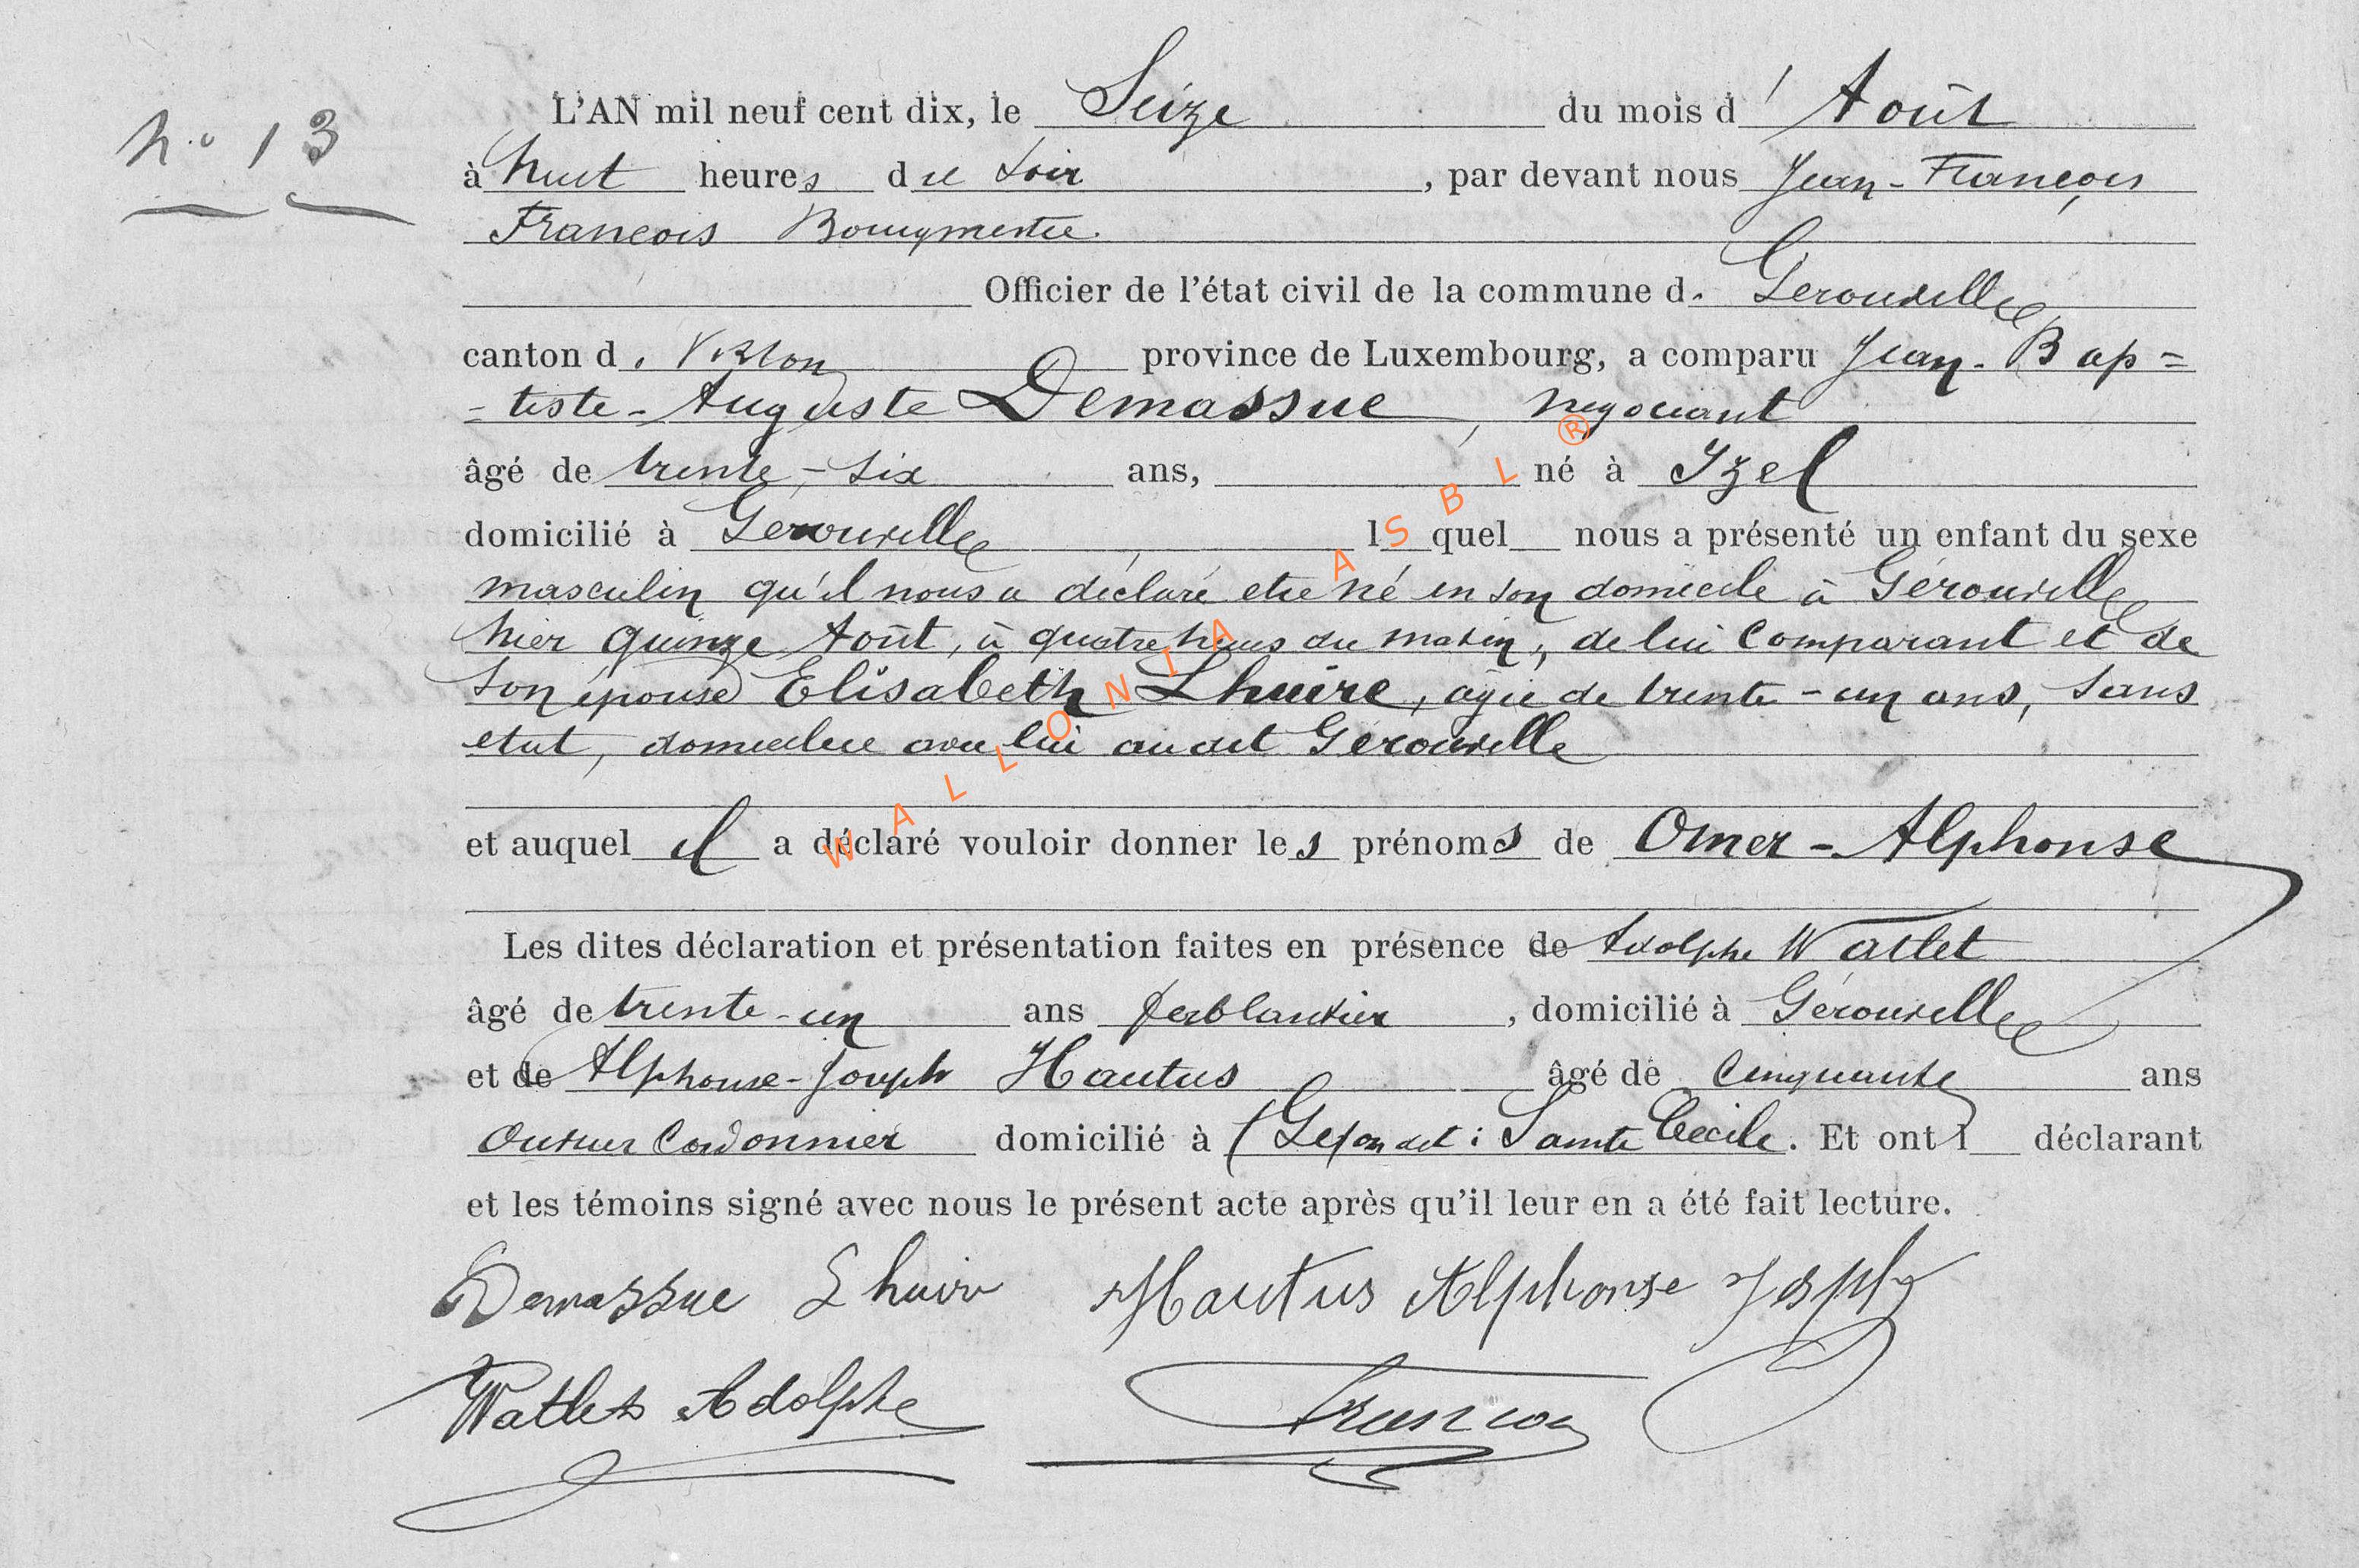 L'AN mil neuf cent dix, le Seize du mois d'Août
n° 13
à huit heures du soir, par devant nous Jean-François
François Bourgmestre
Officier de l'état civil de la commune d. Gérouville
canton d. Virton province de Luxembourg, a comparu Jean-Bap=
=tiste-Auguste Demassue, négociant
âgé de trente-six ans, né à Izel
domicilié à Gérouville l quel nous a présenté un enfant du sexe
masculin qu'il nous a déclaré etre né en son domicile à Gérouville
hier quinze Août, à quatre heures du matin, de lui Comparant et de
son épouse Elisabeth Lhuire, agée de trente-un ans, sans
etat, domiciliée avec lui audit Gérouville
et auquel il a déclaré vouloir donner les prénoms de Omer-Alphonse
Les dites déclaration et présentation faites en présence de Adolphe Watlet
âgé de trente-un ans ferblantier, domicilié à Gérouville
et de Alphonse-Joseph Hautus âgé de Cinquante ans
Ouvrier Cordonnier domicilié à Sainte Cécile. Et ont l déclarant
et les témoins signé avec nous le présent acte après qu'il leur en a été fait lecture.
Demassue Lhuire Hautus Alphonse Joseph
Watlet Adolphe François
WALLONIA ASBL ®